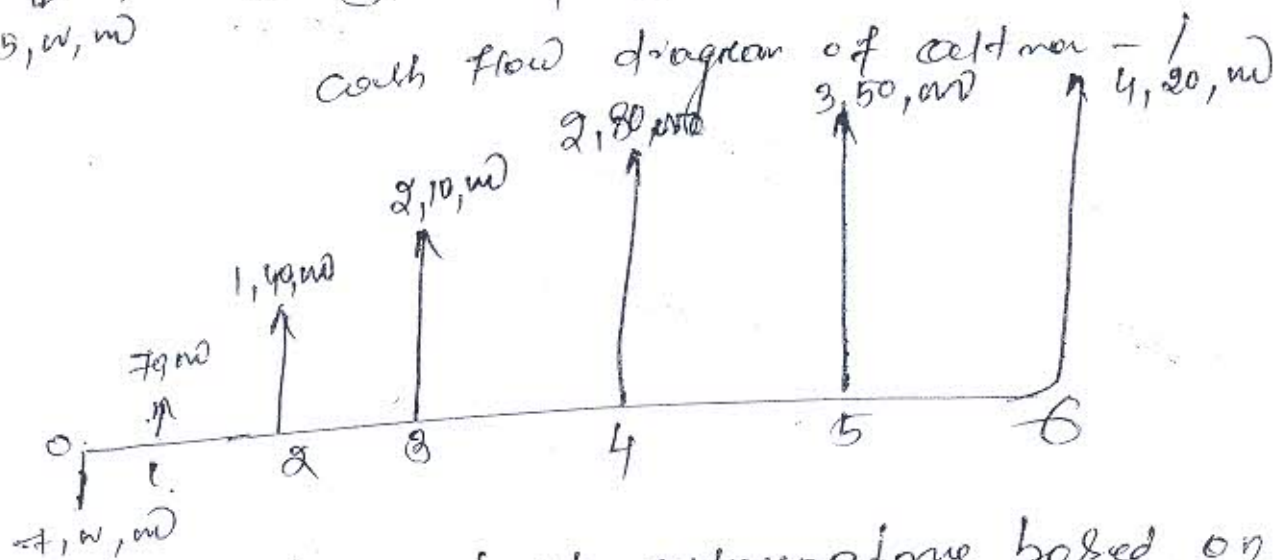 5,00,000
Cash flow diagram of alt no - 1
4,20,000
3,50,000
2,80,000
2,10,000
1,40,000
70,000
0 1 2 3 4 5 6
7,00,000
based on